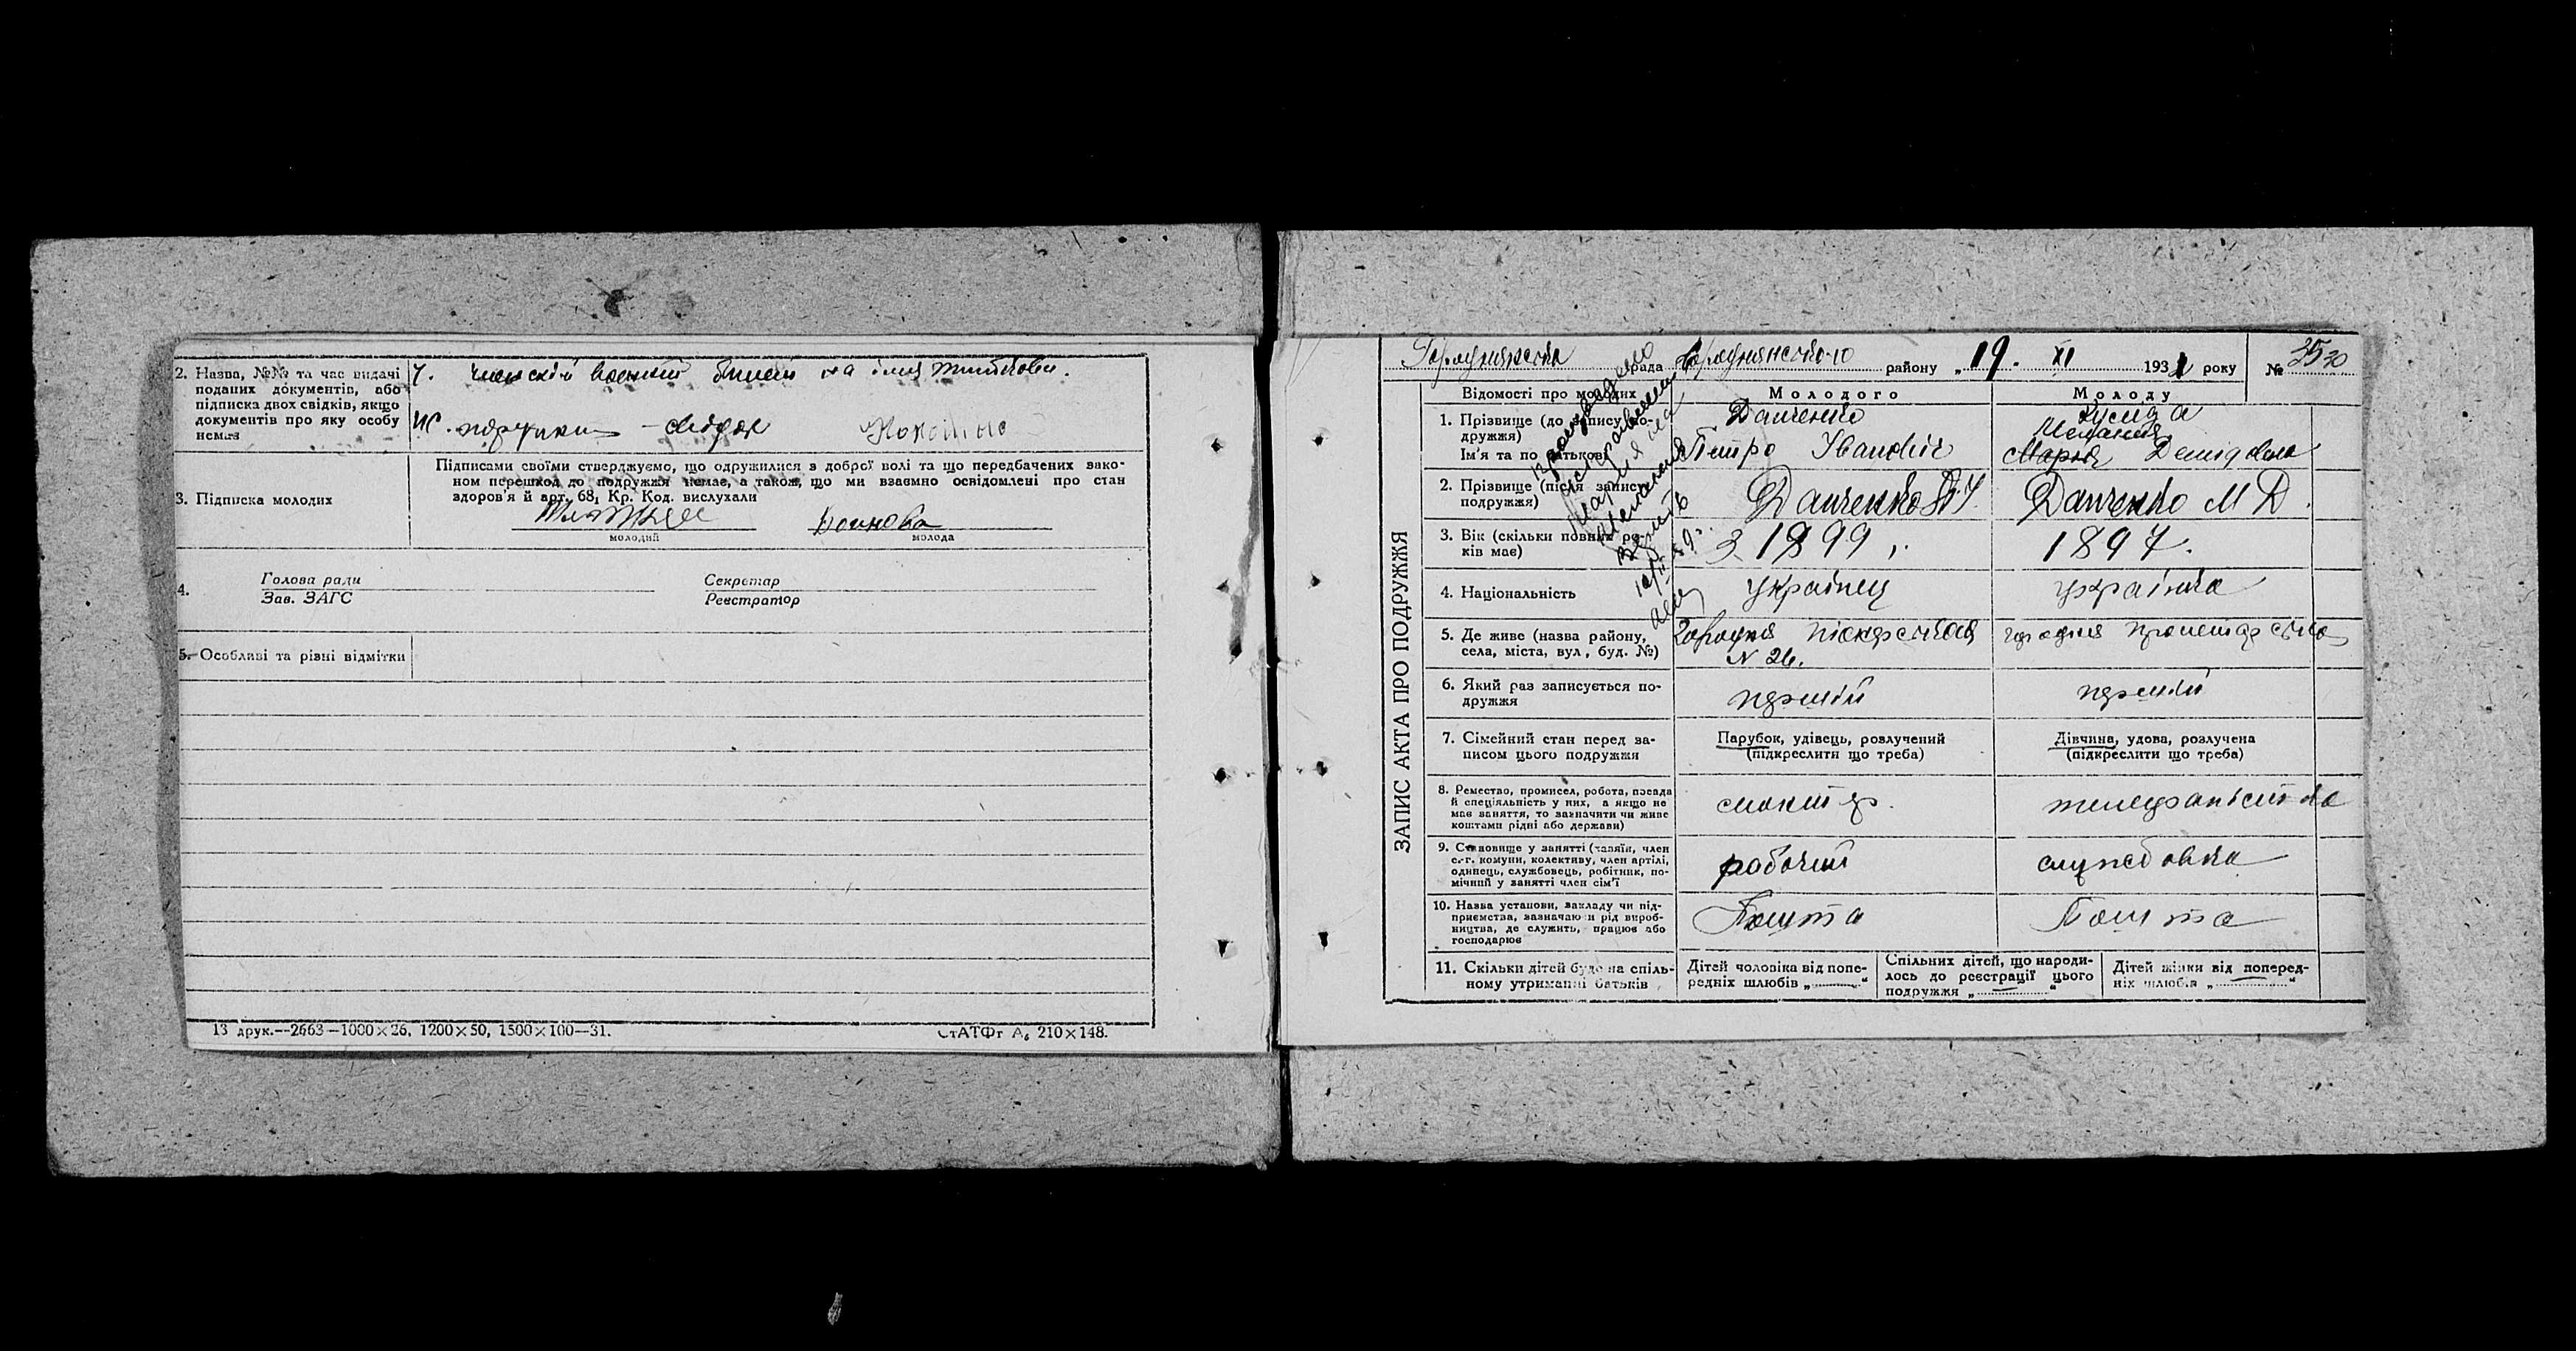 2. Назва, №№ та час видачі
поданих документів, або
підписка двох свідків, якщо
документів про яку особу
немає
Ч. військовий на імя
Ж.
3. Підписка молодих
Підписами своїми стверджуємо, що одружилися з доброї волі та що передбачених зако-
ном перешкод до подружжя немає, а також, що ми взаємно освідомлені про стан
здоров'я й арт. 68, Кр. Код. вислухали
молодий молода
4. Голова ради Секретар
Зав. ЗАГС Реєстратор
5. Особливі та різні відмітки
13 друк.—2663—1000×26, 1200×50, 1500×100—31.
СтАТФт А₆ 210×148.
ЗАПИС АКТА ПРО ПОДРУЖЖЯ
Городнянська рада Городнянсько-го району „19. XI 1931 року №
Відомості про молодих Молодого Молоду
1. Прізвище (до запису по-
дружжя)
Ім'я та по батькові
Данченко
Петро Іванович
Меланія
Марія Демидовна
2. Прізвище (після запису
подружжя)
Данченко П І.
Данченко М Д.
3. Вік (скільки повних ро-
ків має)
з 1899
1897.
4. Національність
українец
українка
5. Де живе (назва району,
села, міста, вул., буд. №)
Городня
N 26.
городня пролетарська
6. Який раз записується по-
дружжя
перший
перший
7. Сімейний стан перед за-
писом цього подружжя
Парубок, удівець, розлучений
(підкреслити що треба)
Дівчина, удова, розлучена
(підкреслити що треба)
8. Ремество, промисел, робота, посада
й спеціяльність у них, а якщо не
має заняття, то зазначити чи живе
коштами рідні або держави)
монтер.
телефаністка
9. Становище у занятті (хазяїн, член
с.-г. комуни, колективу, член артілі,
одинець, службовець, робітник, по-
мічний у занятті член сім'ї
рабочий
службовка
10. Назва установи, закладу чи під-
приємства, зазначаючи рід вироб-
ництва, де служить, працює або
господарює
Пошта
Пошта
11. Скільки дітей буде на спіль-
ному утриманні батьків
Дітей чоловіка від попе-
редніх шлюбів „—“
Спільних дітей, що народи-
лось до реєстрації цього
подружжя „—“
Дітей жінки від поперед-
ніх шлюбів „—“